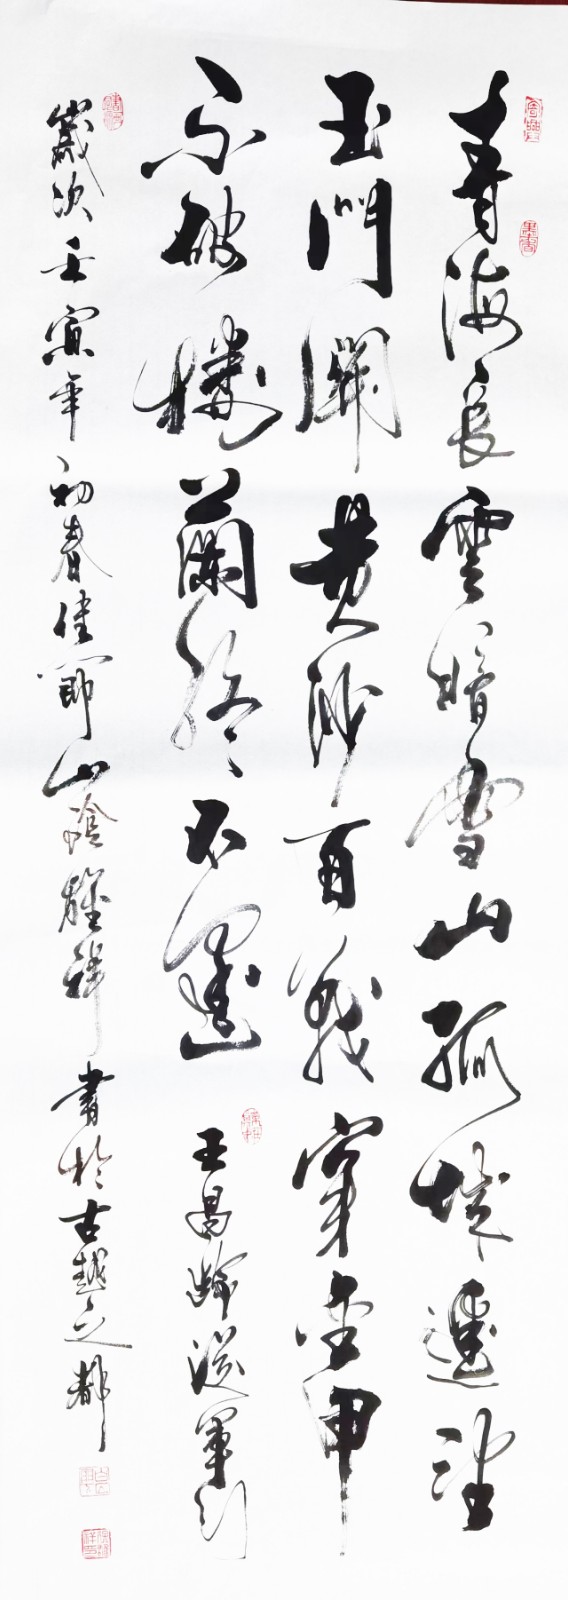 青海長雲暗雪山孤城遙望
玉門關黄沙百戰穿金甲
不破樓蘭終不還
王昌齡從軍行
歲次壬寅年初春佳節山陰祥書於古越之都